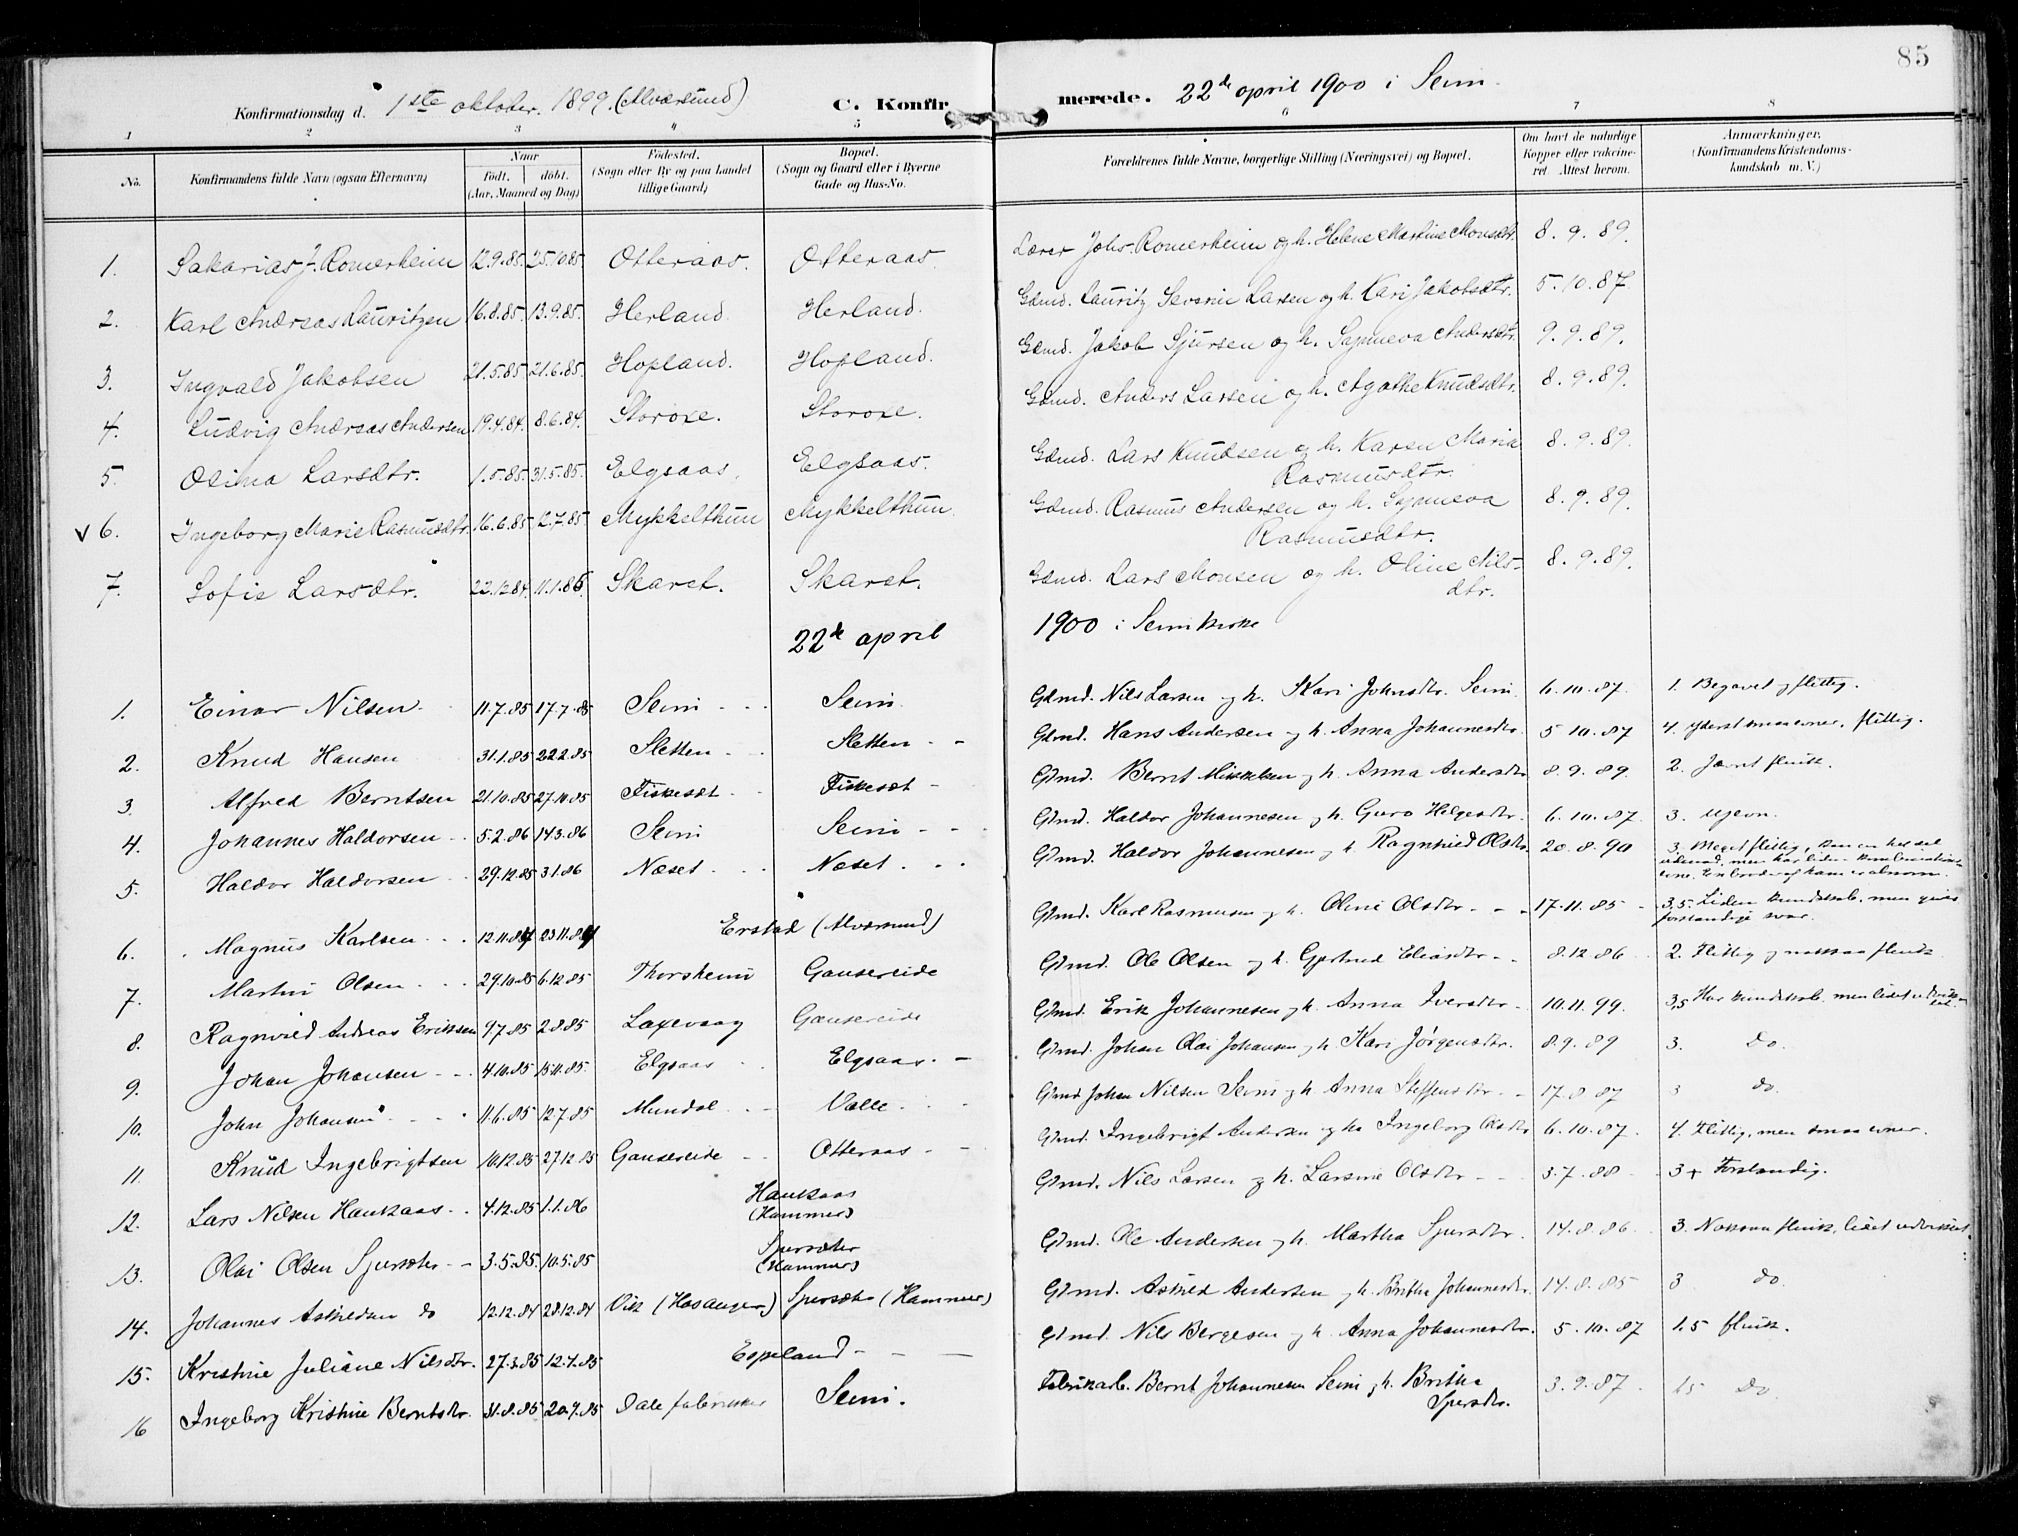 85
Konfirmationsdag d. 1ste oktober. 1899. (Alværsund) C. Konfirmerede. 22de april 1900 i Seim.
1 2 3 4 5 6 7 8
No. Konfirmandens fulde Navn (ogsaa Efternavn) Naar født. døbt. (Aar, Maaned og Dag) Fødested. (Sogn eller By og paa Landet tillige Gaard) Bopæl. (Sogn og Gaard eller i Byerne Gade og Hus-No. Forældrenes fulde Navne, borgerlige Stilling (Næringsvei) og Bopæl. Om havt de naturlige Kopper eller vakcineret. Attest herom. Anmærkninger. (Konfirmandens Kristendomskundskab m. V.)
1. Sakarias J. Romerheim 12.9.85. 25.10.85. Otteraas. Otteraas. Lærer Johs. Romerheim og h. Helene Martine Monsdtr. 8.9.89.
2. Karl Andreas Lauritzen 16.8.85. 13.9.85. Herland. Herland. Gdmd. Lauritz Severin Larsen og h. Kari Jakobsdtr. 5.10.87.
3. Ingvald Jakobsen 21.5.85. 21.6.85. Hopland. Hopland. Gdmd. Jakob Sjursen og h. Synneva Andersdtr. 9.9.89.
4. Ludvig Andreas Andersen 19.4.84. 8.6.84. Storoxe. Storoxe. Gdmd. Anders Larsen og h. Agathe Knudsdtr. 8.9.89.
5. Olina Larsdtr. 1.5.85. 31.5.85. Elgsaas. Elgsaas. Gdmd. Lars Knudsen og h. Karen Maria Rasmusdtr. 8.9.89.
v 6. Ingeborg Marie Rasmusdtr. 16.6.85. 12.7.85 Mykkelthun Mykkelthun. Gdmd. Rasmus Andersen og h. Synneva Rasmusdtr. 8.9.89.
7. Sofie Larsdtr. 22.12.84. 11.1.85. Skaret. Skaret. Gdmd. Lars Monsen og h. Oline Nilsdtr. 8.9.89.
22de april 1900 i Seim kirke
1. Einar Nilsen 11.7.85 17.7.85 Seim Seim. Gdmd. Nils Larsen og h. Kari Johnsdtr. Seim. 6.10.87. 1. Begavet og flittig.
2. Knud Hansen 31.1.85 22.2.85 Sletten Sletten Gdmd. Hans Andersen og h. Anna Johannesdtr. 5.10.87 4. yderst smaa evner, flittig.
3. Alfred Berntsen 21.10.85 27.10.85 Fiskesæt Fiskesæt Gdmd. Bernt Mikkelsen og h. Anna Andersdtr 8.9.89. 2. Jævnt flink.
4. Johannes Haldorsen 5.2.86 14.3.86 Seim Seim Gdmd. Haldor Johannesen og h. Guro Helgesdtr. 6.10.87. 3. Ujevn.
5. Haldor Haldorsen 29.12.85 3.1.86 Næset Næset. Gdmd. Haldor Johannesen og h. Ragnhild Olsdtr. 20.8.90 3. Meget flittig, kan en hel del udenad, men har liden
6. Magnus Karlsen 12.11.84 23.11.84 Erstad (Alværsund) Gdmd. Karl Rasmusen og h. Oline Olsdtr. 17.11.85 3,5. Liden kundskab, men giver forstandige svar.
7. Martin Olsen 29.10.85 6.12.85 Thorsheim Gausereide Gdmd. Ole Olsen og h. Gjertrud Eliasdtr. 8.12.86 2. Flittig og noksaa flink
8. Ragnvald Andreas Eriksen 9.7.85 2.8.85 Laxevaag Gausereide Gdmd. Erik Johannesen og h. Anna Iversdtr. 10.11.99. 3,5 Har kundskab, men lidet udviklet.
9. Johan Johansen 4.10.85 15.11.85. Elgsaas Elgsaas. Gdmd. Johan Olai Johansen og h. Kari Jørgensdtr. 8.9.89 3. do.
10. John Johansen 11.6.85 12.7.85 Mundal Valle Gdmd Johan Nilsen Seim og h. Anna Steffensdtr. 17.8.87 3 do.
11. Knud Ingebrigtsen 10.12.85 27.12.85 Gausereide Otteraas Gdmd. Ingebrigt Andersen og h. Ingeborg Olsdtr 6.10.87. 4. Flittig, men smaa evner.
12. Lars Nilsen Haukaas 4.12.85 1.1.86 Haukaas (Hammer) Gdmd. Nils Larsen og h. Larsine Olsdtr. 3.7.88 3+ Forstandig.
13. Olai Olsen Sjursæter 3.5.85. 10.5.85 Sjursæter (Hammer) Gdmd. Ole Andersen og h. Martha Sjursdtr. 14.8.86. 3. Noksaa flink, lidet udviklet.
14. Johannes Askildsen do 12.12.84 28.12.84 Vik (Hosanger) Sjursæter (Hammer) Gdmd. Askild Andersen og h. Britha Johannesdtr. 14.8.85 3 do.
15. Kristine Juliane Nilsdtr. 27.3.85 12.4.85 Espeland Gdmd. Nils Bergesen og h. Anna Johannesdtr. 5.10.87 1.5 flink.
16 Ingeborg Kristine Berntsdtr. 31.8.85 20.9.85 Dale fabrikker Seim. Fabrikarb. Bernt Johannesen Seim og h. Britha Sjursdtr. 3.9.87. 1.5 do.